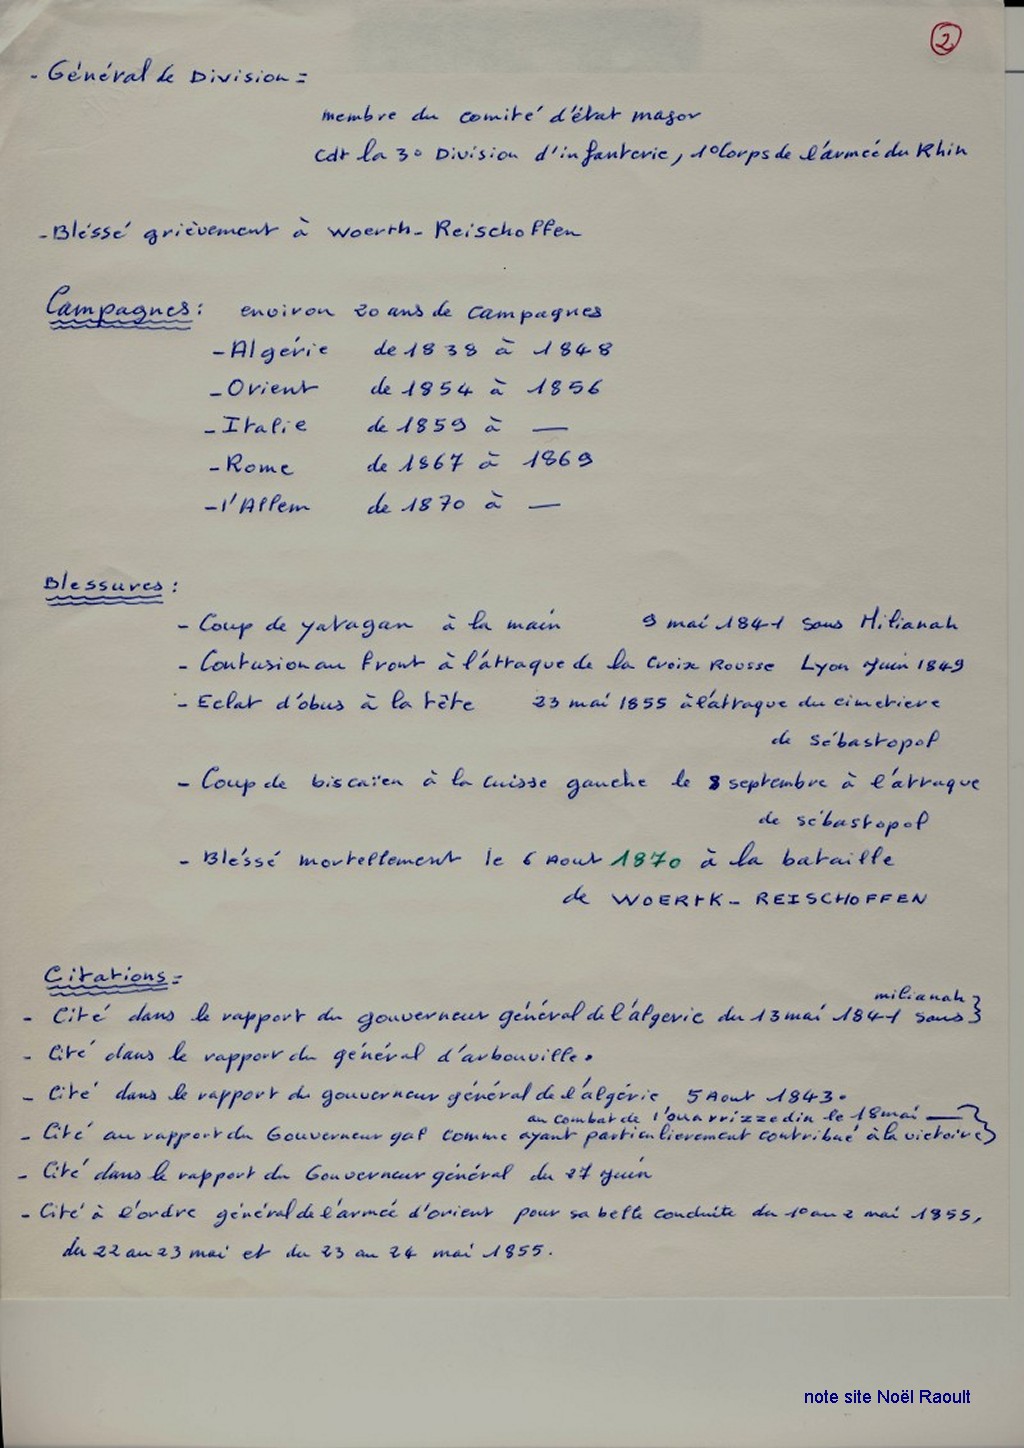 2
- Général de Division =
membre du comité d'état major
Cdt la 3° Division d'infanterie, 1° Corps de l'armée du Rhin
- Bléssé grièvement à Woerth - Reischoffen
Campagnes : environ 20 ans de campagnes
- Algérie de 1838 à 1848
- Orient de 1854 à 1856
- Italie de 1859 à —
- Rome de 1867 à 1869
- l'Allem de 1870 à —
Blessures :
- Coup de yatagan à la main 9 mai 1841 sous Milianah
- Contusion au front à l'attaque de la Croix Rousse Lyon Juin 1849
- Eclat d'obus à la tête 23 mai 1855 à l'attaque du cimetiere
de Sébastopol
- Coup de biscaïen à la cuisse gauche le 8 septembre à l'attaque
de sébastopol
- Bléssé mortellement le 6 Aout 1870 à la bataille
de WOERTH - REISCHOFFEN
Citations =
milianah
- Cité dans le rapport du gouverneur général de l'algerie du 13 mai 1841 sous
- Cité dans le rapport du général d'arbouville.
- Cité dans le rapport du gouverneur général de l'algérie 5 Aout 1843.
au combat de l'ouarrizzedin le 18 mai —
- Cité au rapport du Gouverneur gal comme ayant particulierement contribué à la victoire
- Cité dans le rapport du Gouverneur général du 27 juin
- Cité à l'ordre général de l'armée d'orient pour sa belle conduite du 1° au 2 mai 1855,
du 22 au 23 mai et du 23 au 24 mai 1855.
note site Noël Raoult